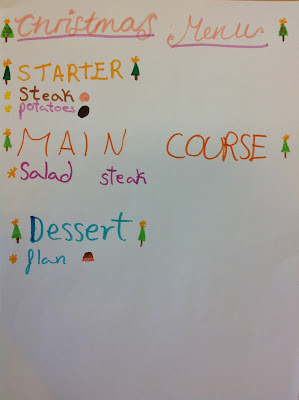 Christmas Menu
STARTER
steak
potatoes
MAIN COURSE
Salad steak
Dessert
flan